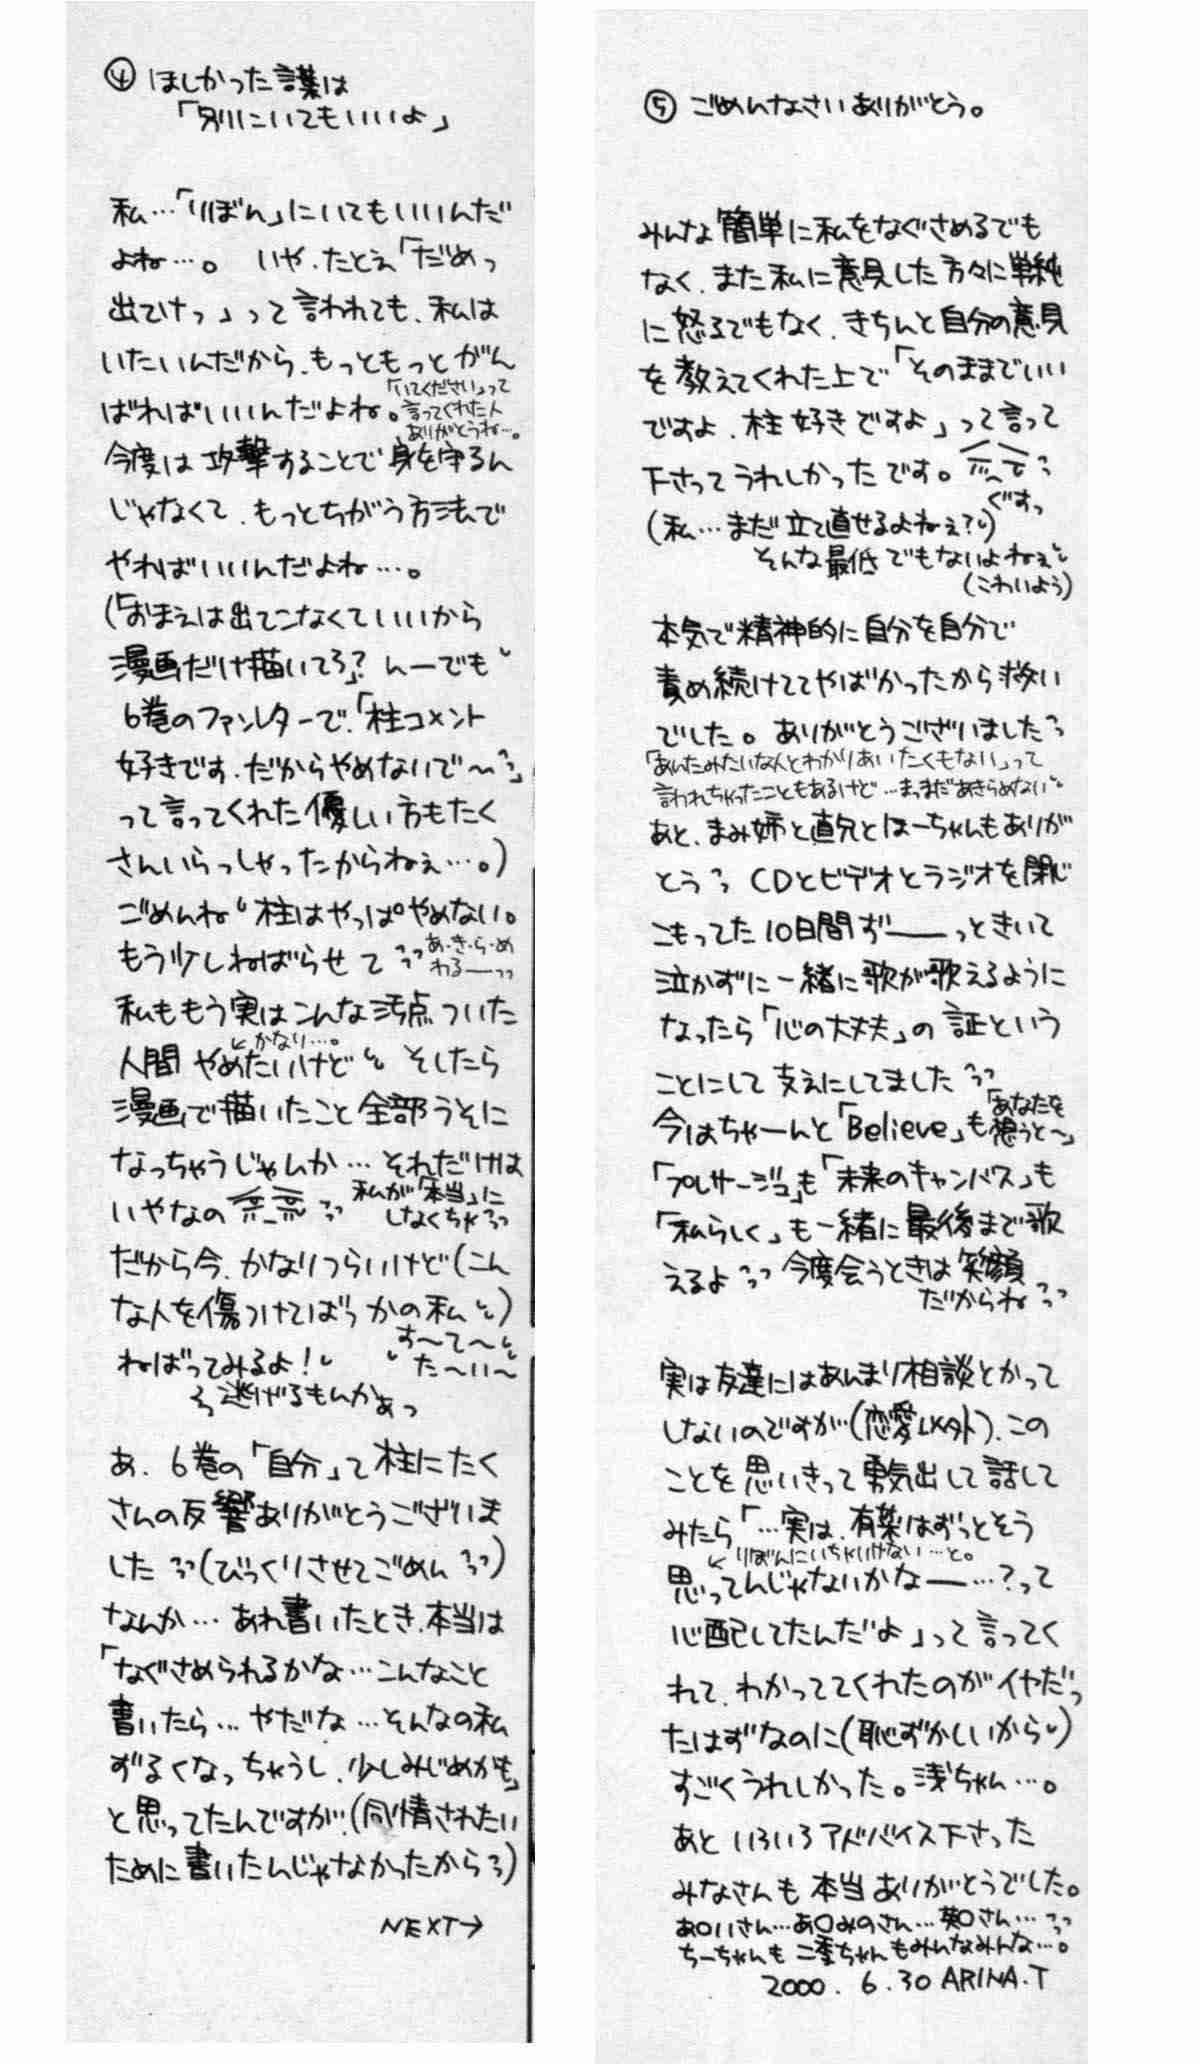 ④ ほしかった言葉は
「別にいてもいいよ」
私…「りぼん」にいてもいいんだ
よね…。 いや、たとえ「だめっ
出てけっ」って言われても、私は
いたいんだから、もっともっとがん
ばればいいんだよね。
「いてください」って
言ってくれた人
ありがとうね…。
今度は攻撃することで身を守るん
じゃなくて、もっとちがう方法で
やればいいんだよね…。
(「おまえは出てこなくていいから
漫画だけ描いてろ」? んーでも
6巻のファンレターで、「柱コメント
好きです、だからやめないで〜」
って言ってくれた優しい方もたく
さんいらっしゃったからねぇ…。)
ごめんね 柱はやっぱやめない。
もう少しねばらせて
あ・き・ら・め
わる——
私ももう実はこんな汚点ついた
人間 やめたいけど そしたら
かなり…。
漫画で描いたこと全部うそに
なっちゃうじゃんか…それだけは
いやなの
私が「本当」に
しなくちゃ
だから今、かなりつらいけど(こん
な人を傷つけてばっかの私)
す〜て〜
た〜い〜
ねばってみるよ!
逃げるもんかぁっ
あ、6巻の「自分」て柱にたく
さんの反響ありがとうございま
した(びっくりさせてごめん)
なんか…あれ書いたとき、本当は
「なぐさめられるかな…こんなこと
書いたら…やだな…そんなの私
ずるくなっちゃうし、少しみじめかも」
と思ってたんですが、(同情されたい
ために書いたんじゃなかったから)
NEXT→
⑤ ごめんなさいありがとう。
みんな簡単に私をなぐさめるでも
なく、また私に意見した方々に単純
に怒るでもなく、きちんと自分の意見
を教えてくれた上で「そのままでいい
ですよ、柱好きですよ」って言って
下さってうれしかったです。
ぐすっ
(私…まだ立て直せるよねぇ?)
そんな最低でもないよねぇ
(こわいよう)
本気で精神的に自分を自分で
責め続けててやばかったから救い
でした。ありがとうございました
「あんたみたいな人とわかりあいたくもない」って
言われちゃったこともあるけど…まっまだあきらめない
あと、まみ姉と直兄とほーちゃんもありが
とう CDとビデオとラジオを閉じ
こもってた10日間ず——っときいて
泣かずに一緒に歌が歌えるように
なったら「心の大丈夫」の証という
ことにして支えにしてました
今はちゃーんと「Believe」も「あなたを
想うと〜」
「プレサージュ」も「未来のキャンバス」も
「私らしく」も一緒に最後まで歌
えるよ 今度会うときは笑顔
だからね
実は友達にはあんまり相談とかって
しないのですが(恋愛以外)、この
ことを思いきって勇気出して話して
みたら「…実は、有菜はずっとそう
りぼんにいちゃいけない…と。
思ってんじゃないかなー…?って
心配してたんだよ」って言ってく
れて、わかっててくれたのがイヤだっ
たはずなのに(恥ずかしいから)
すごくうれしかった。浅ちゃん…。
あといろいろアドバイス下さった
みなさんも本当ありがとうでした。
あ○いさん…あ○みのさん…英○さん…
ちーちゃんも二葉ちゃんもみんなみんな…。
2000.6.30 ARINA.T